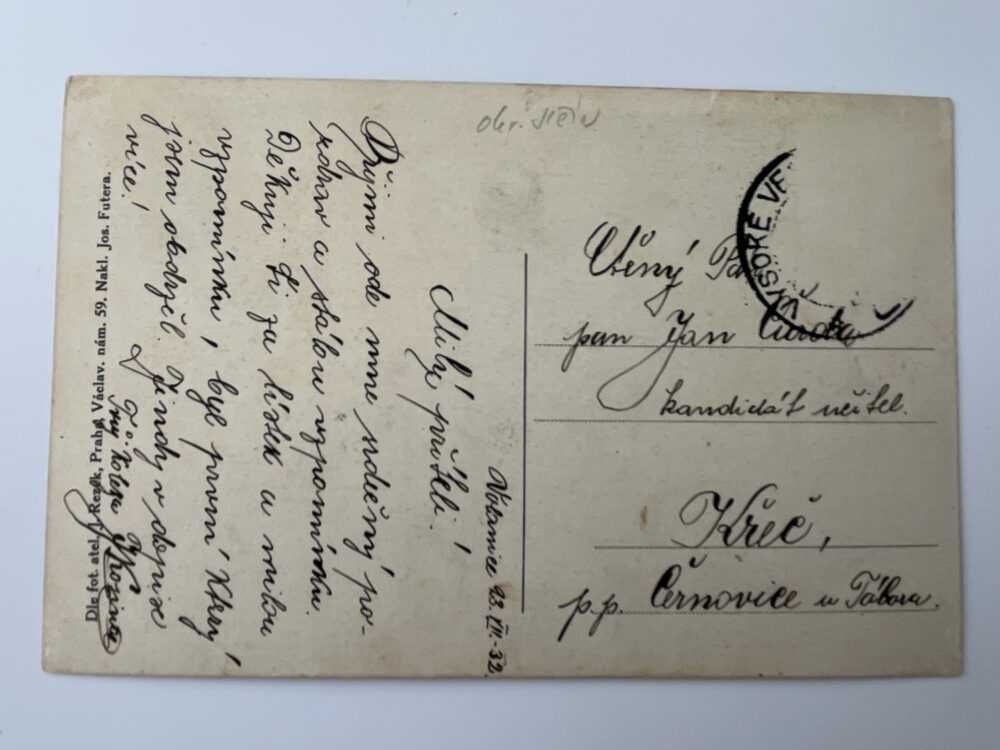 Votamice 23. VII.-32.
Milý příteli!
Přijmi ode mne srdečný po-
zdrav a stálou vzpomínku.
Děkuji Ti za lístek a milou
vzpomínku, byl první který
jsem obdržel. Jindy v dopise
více!
Tvůj kolega
Dle fot. atel. J. Rezek, Praha, Václav. nám. 59. Nakl. Jos. Futera.
VYSOKÉ VE
Ctěný Pán
pan Jan Čurda
kandidát učitel.
Křeč,
p.p. Černovice u Tábora.